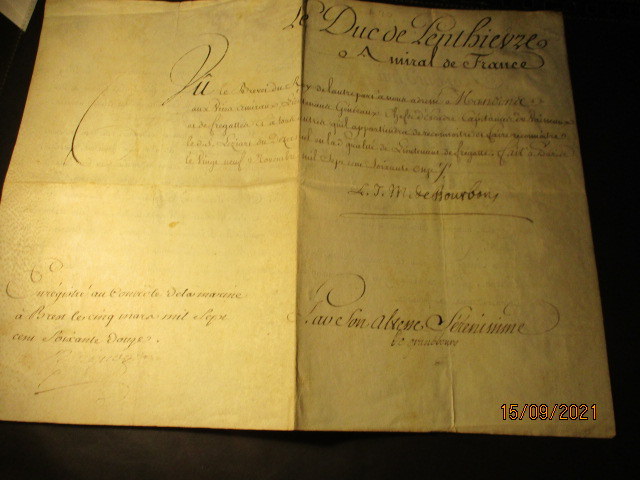 Le Duc de Penthievre
Amiral de France
Vû le Brevet du Roy de l'autre part a nous adressé Mandons
aux Vice Amiraux Lieutenans Generaux, Chefs d'Escadre Capitaines de Vaisseaux
et de fregattes et a tous autres qu'il appartiendra de reconnoitre et faire reconnoitre
le en la qualité de Lieutenant de fregatte. fait a
le Vingt neuf Novembre mil Sept cent Soixante
L. J. M. de Bourbon
Enregistré au Controle de la marine
à Brest le cinq mars mil Sept
cent Soixante Douze.
Par Son Altesse Sérénissime
15/09/2021